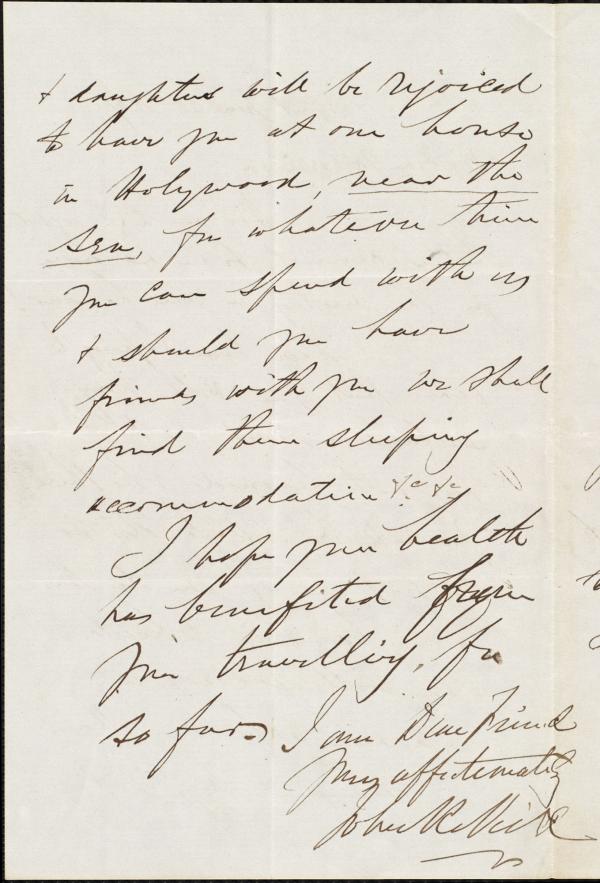 & daughters will be rejoiced
to have you at our house
in Holywood, near the
sea, for whatever time
you can spend with us
& should you have
friends with you we shall
find them sleeping
accommodation &c &c
I hope your health
has benefited from
your travelling, 
so far. I am Dear Friend
yours affectionately
John